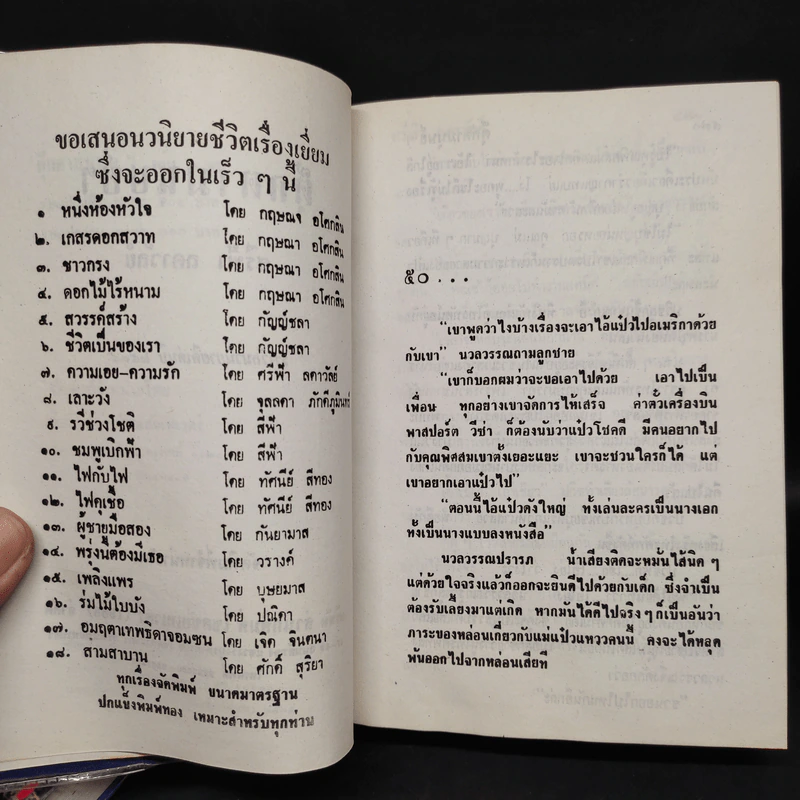 ขอเสนอนวนิยายชีวิตเรื่องเยี่ยม
ซึ่งจะออกในเร็ว ๆ นี้
๑ หนึ่งห้องหัวใจ โดย กฤษณา อโศกสิน
๒. เกสรดอกสวาท โดย กฤษณา อโศกสิน
๓. ชาวกรง โดย กฤษณา อโศกสิน
๔. ดอกไม้ไร้หนาม โดย กฤษณา อโศกสิน
๕. สวรรค์สร้าง โดย กัญญ์ชลา
๖. ชีวิตเป็นของเรา โดย กัญญ์ชลา
๗. ความเอย-ความรัก โดย ศรีฟ้า ลดาวัลย์
๘. เลาะวัง โดย จุลลดา ภักดีภูมินทร์
๙. รวีช่วงโชติ โดย สีฟ้า
๑๐. ชมพูเบิกฟ้า โดย สีฟ้า
๑๑. ไฟกับไฟ โดย ทัศนีย์ สีทอง
๑๒. ไฟคุเชื้อ โดย ทัศนีย์ สีทอง
๑๓. ผู้ชายมือสอง โดย กันยามาส
๑๔. พรุ่งนี้ต้องมีเธอ โดย วรางค์
๑๕. เพลิงแพร โดย บุษยมาส
๑๖. ร่มไม้ใบบัง โดย ปณิตา
๑๗. อมฤตาเทพธิดาจอมซน โดย เจิด จินตนา
๑๘. สามสาบาน โดย ศักดิ์ สุริยา
ทุกเรื่องจัดพิมพ์ ขนาดมาตรฐาน
ปกแข็งพิมพ์ทอง เหมาะสำหรับทุกท่าน
๕๐ . . .
“เขาพูดว่าไงบ้างเรื่องจะเอาไอ้แป๋วไปอเมริกาด้วย
กับเขา” นวลวรรณถามลูกชาย
“เขาก็บอกผมว่าจะขอเอาไปด้วย เอาไปเป็น
เพื่อน ทุกอย่างเขาจัดการให้เสร็จ ค่าตั๋วเครื่องบิน
พาสปอร์ต วีซ่า ก็ต้องนับว่าแป๋วโชคดี มีคนอยากไป
กับคุณพิศสมเขาตั้งเยอะแยะ เขาจะชวนใครก็ได้ แต่
เขาอยากเอาแป๋วไป”
“ตอนนี้ไอ้แป๋วดังใหญ่ ทั้งเล่นละครเป็นนางเอก
ทั้งเป็นนางแบบลงหนังสือ”
นวลวรรณปรารภ น้ำเสียงติดจะหมั่นไส้นิด ๆ
แต่ด้วยใจจริงแล้วก็ออกจะยินดีไปด้วยกับเด็ก ซึ่งจำเป็น
ต้องรับเลี้ยงมาแต่เกิด หากมันได้ดีไปจริง ๆ ก็เป็นอันว่า
ภาระของหล่อนเกี่ยวกับแม่แป๋วแหววคนนี้ คงจะได้หลุด
พ้นออกไปจากหล่อนเสียที